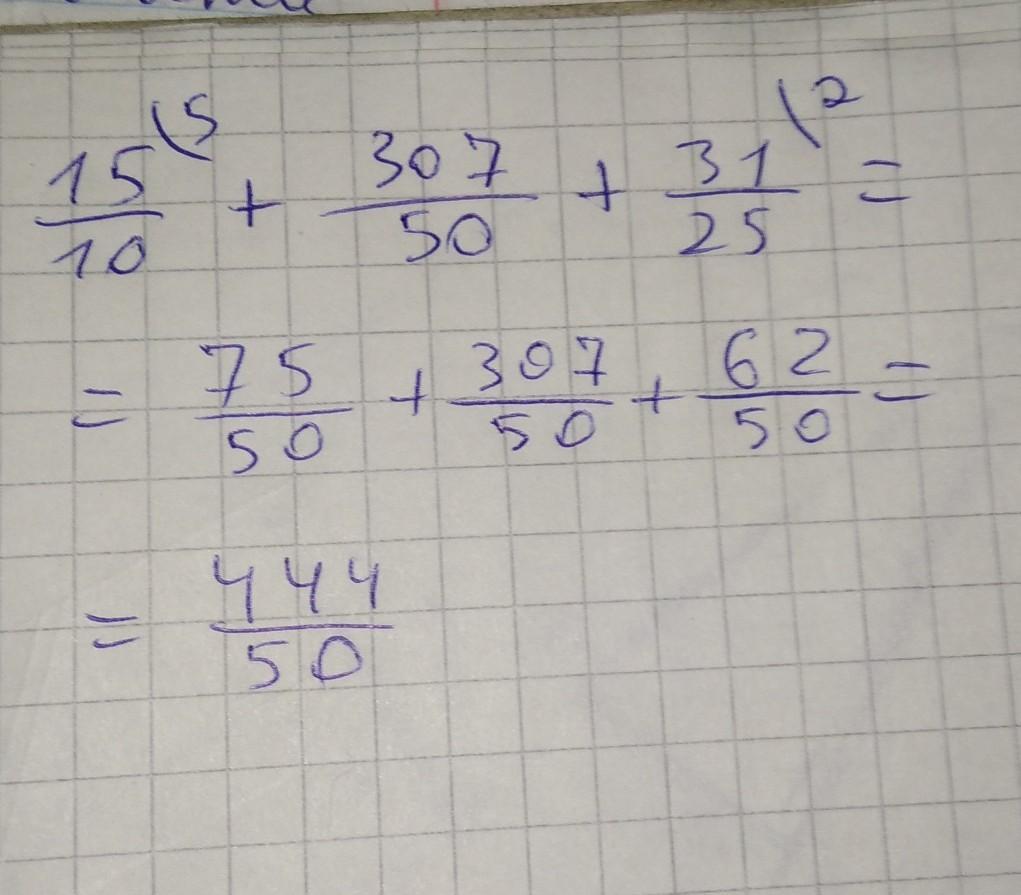 15/10 \5 + 307/50 + 31/25 \2 =
= 75/50 + 307/50 + 62/50 =
= 444/50